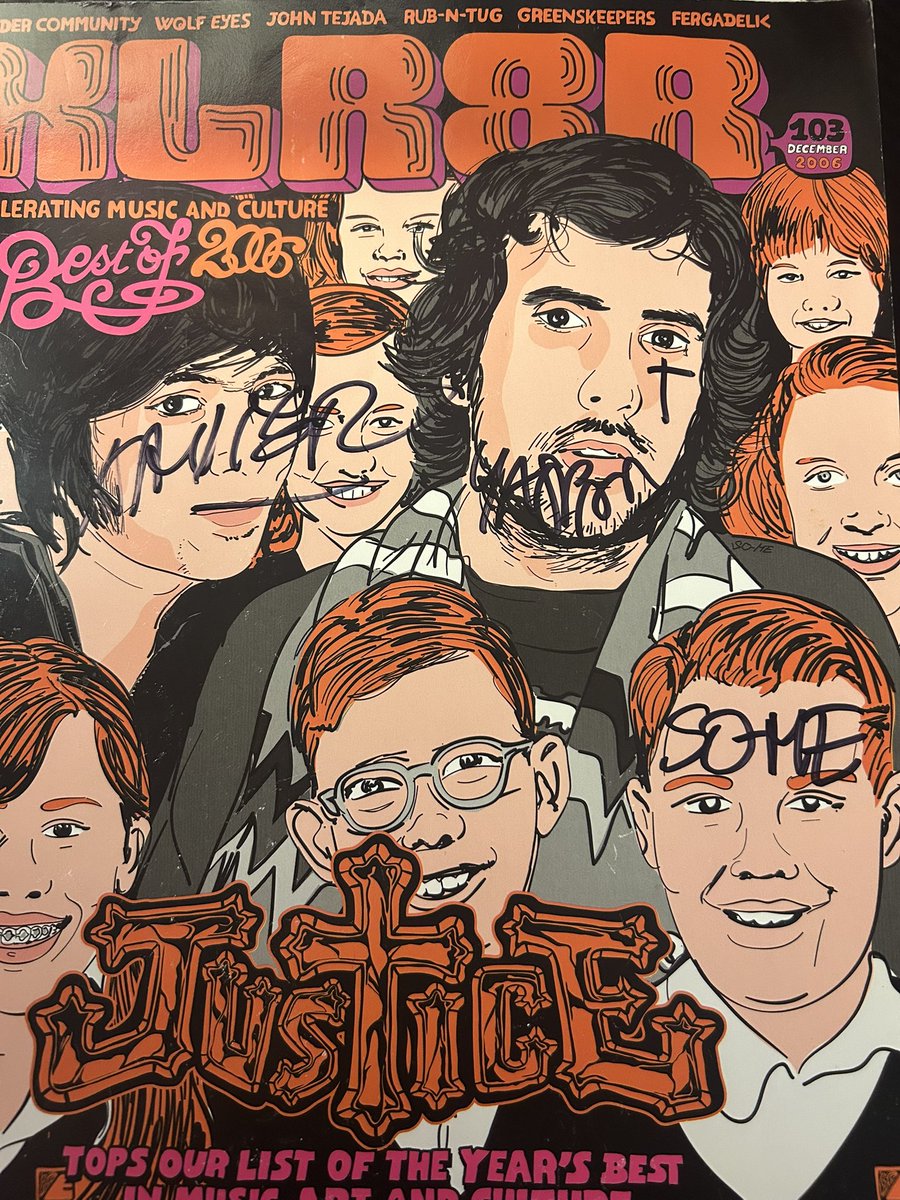 DER COMMUNITY WOLF EYES JOHN TEJADA RUB-N-TUG GREENSKEEPERS FERGADELIC
XLR8R
103
DECEMBER
2006
LERATING MUSIC AND CULTURE
Best of 2006
XAVIER
GASPARD
SO-ME
SO ME
JUSTICE
TOPS OUR LIST OF THE YEAR'S BEST
IN MUSIC ART AND CULTURE